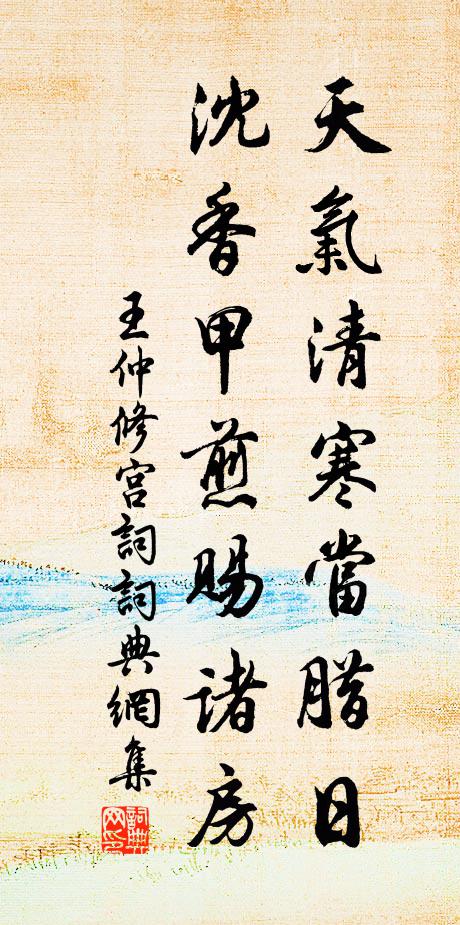 天氣清寒當腊日
沈香甲煎賜諸房
王仲修宫詞詞典網集
詞典网印